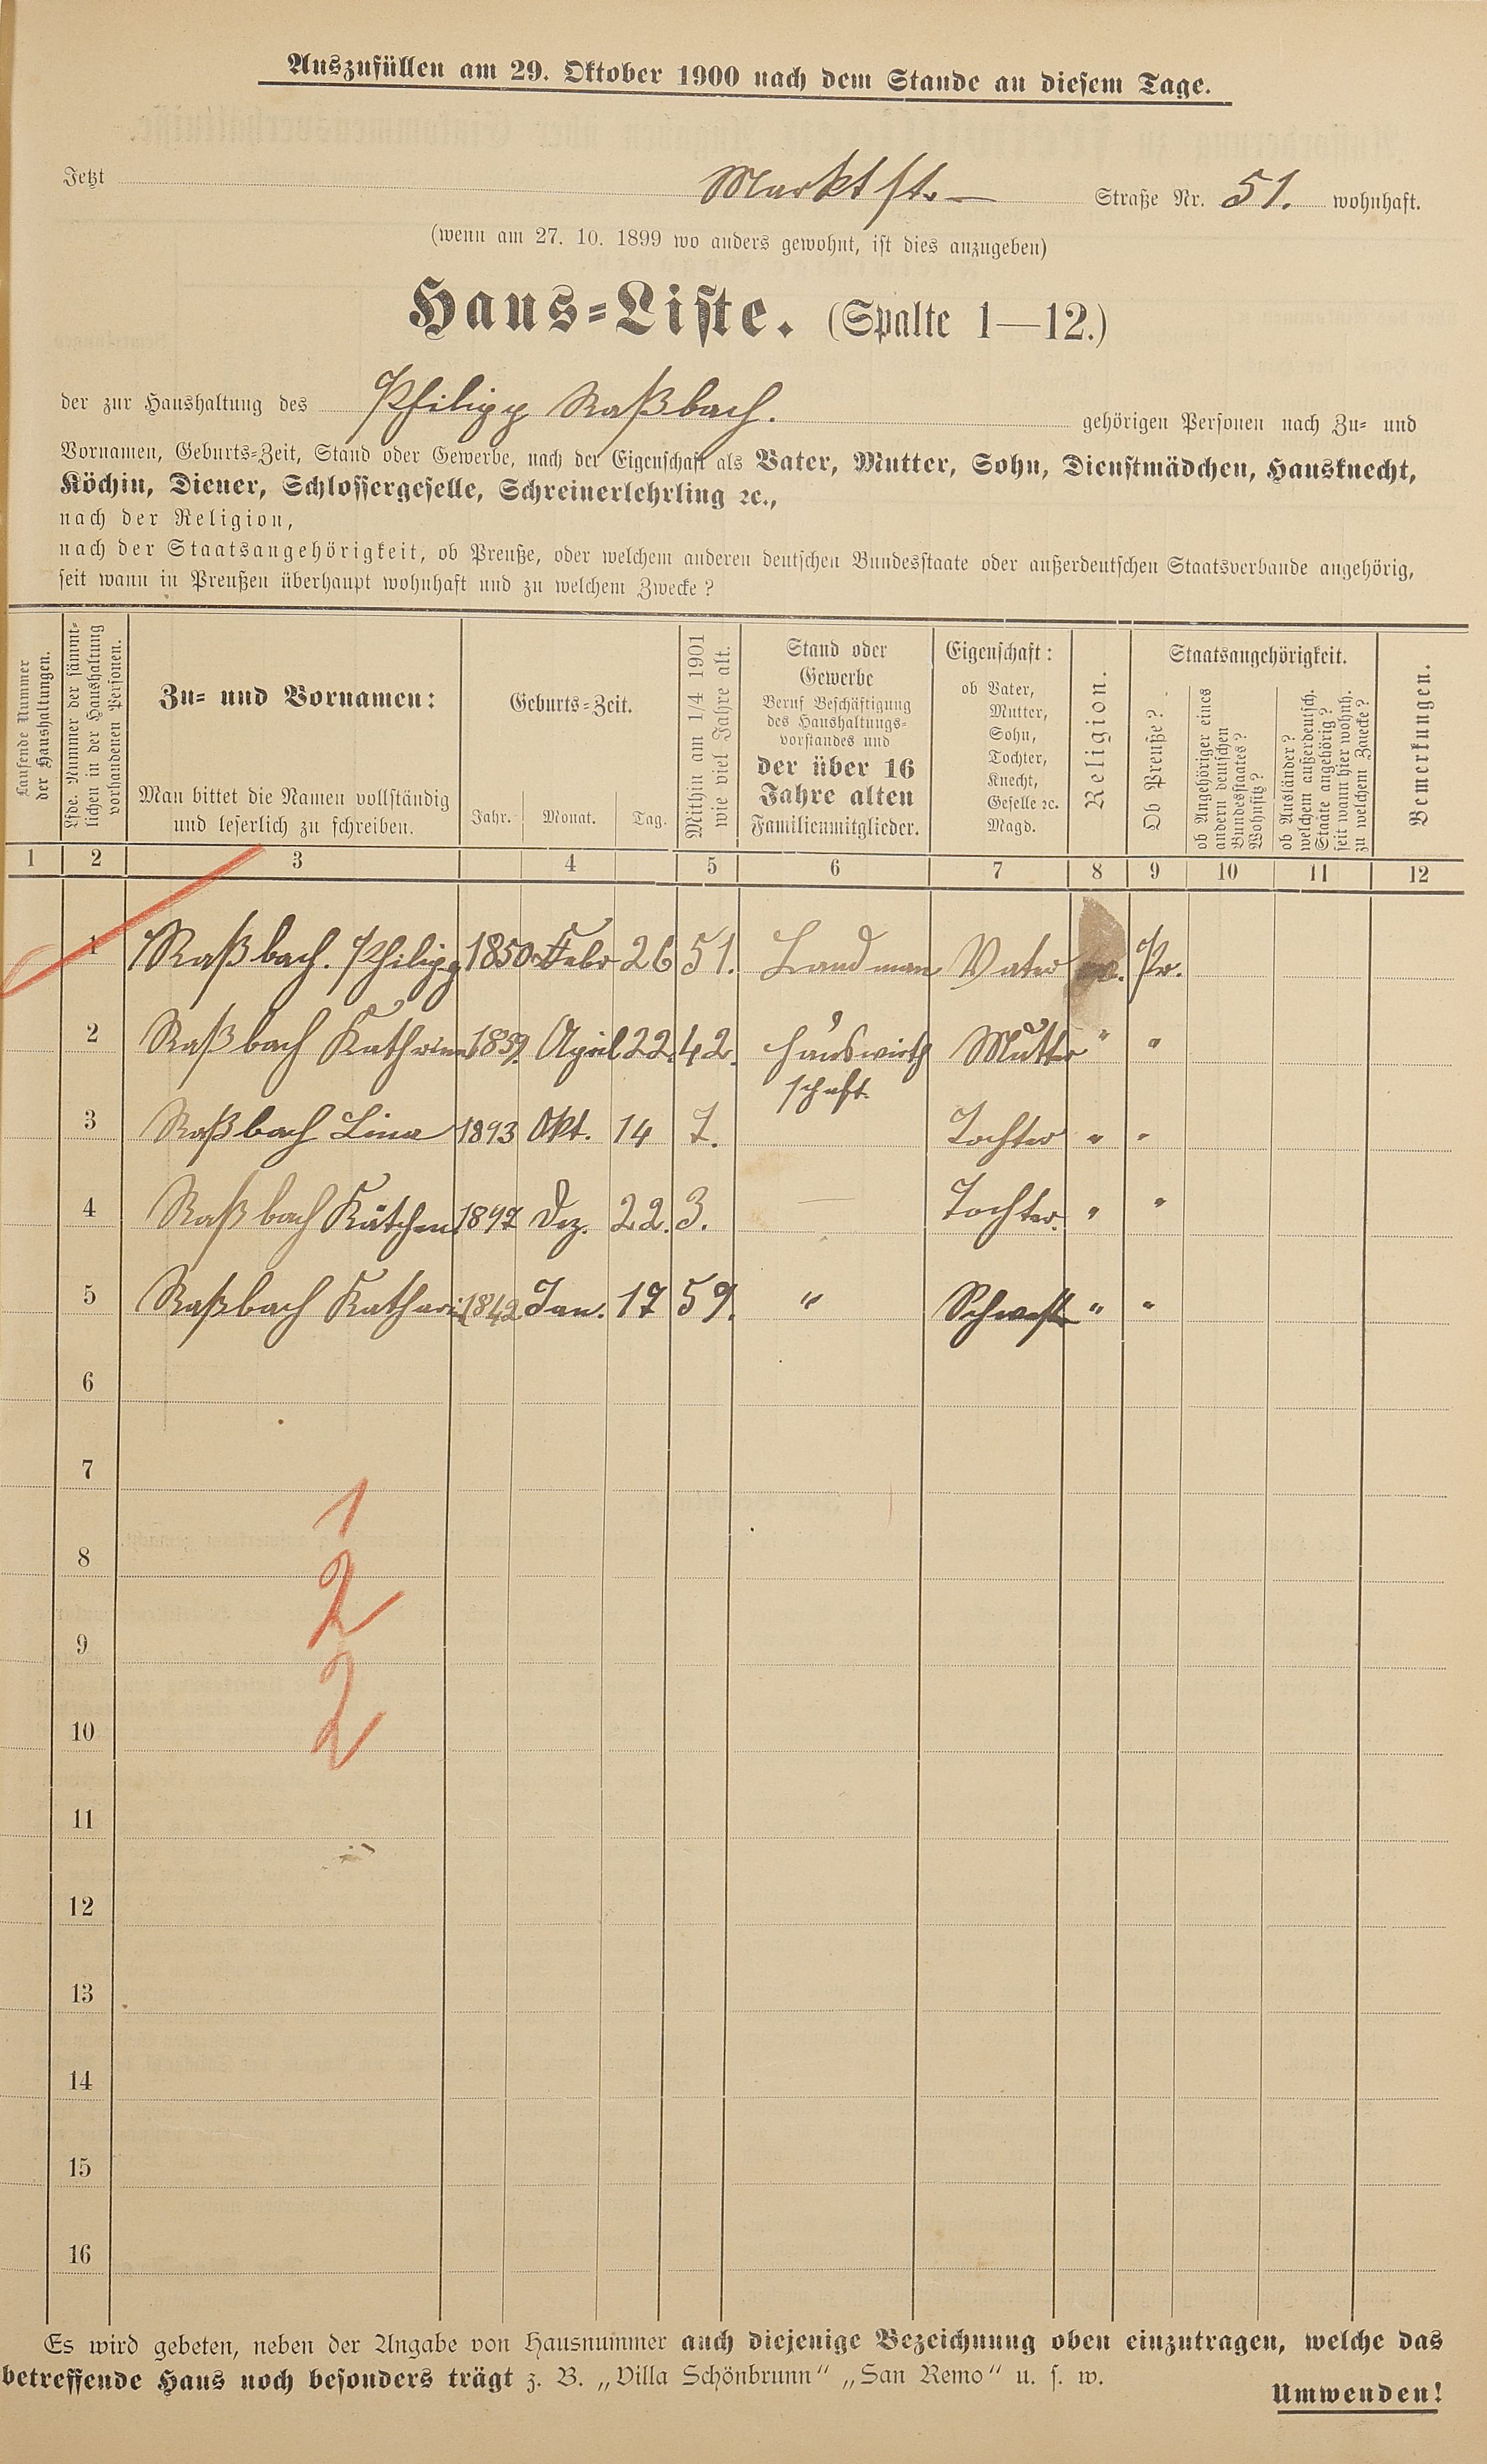 Auszufüllen am 29. Oktober 1900 nach dem Stande an diesem Tage.
Jetzt Marktstr. Straße Nr. 51. wohnhaft.
(wenn am 27. 10. 1899 wo anders gewohnt, ist dies anzugeben)
Haus-Liste. (Spalte 1—12.)
der zur Haushaltung des Philipp Raßbach. gehörigen Personen nach Zu- und
Vornamen, Geburts-Zeit, Stand oder Gewerbe, nach der Eigenschaft als Vater, Mutter, Sohn, Dienstmädchen, Hausknecht,
Köchin, Diener, Schlossergeselle, Schreinerlehrling ꝛc.,
nach der Religion,
nach der Staatsangehörigkeit, ob Preuße, oder welchem anderen deutschen Bundesstaate oder außerdeutschen Staatsverbande angehörig,
seit wann in Preußen überhaupt wohnhaft und zu welchem Zwecke?
Laufende Nummer
der Haushaltungen.
Lfde. Nummer der sämmt-
lichen in der Haushaltung
vorhandenen Personen.
Zu- und Vornamen:
Man bittet die Namen vollständig
und leserlich zu schreiben.
Geburts-Zeit.
Jahr. Monat. Tag.
Mithin am 1/4 1901
wie viel Jahre alt.
Stand oder
Gewerbe
Beruf Beschäftigung
des Haushaltungs-
vorstandes und
der über 16
Jahre alten
Familienmitglieder.
Eigenschaft:
ob Vater,
Mutter,
Sohn,
Tochter,
Knecht,
Geselle ꝛc.
Magd.
Religion.
Staatsangehörigkeit.
Ob Preuße?
ob Angehöriger eines
andern deutschen
Bundesstaates?
Wohnsitz?
ob Ausländer?
welchem außerdeutsch.
Staate angehörig?
seit wann hier wohnh.
zu welchem Zwecke?
Bemerkungen.
1 2 3 4 5 6 7 8 9 10 11 12
1 Raßbach. Philipp 1850 Febr 26 51. Landman Vater ev. Pr.
2 Raßbach Kathrina 1859. April 22. 42. Hauswirth Mutter " "
schaft.
3 Raßbach Lina 1893 Okt. 14 7. Tochter " "
4 Raßbach Kätchen 1897 Dez. 22. 3. — Tochter. " "
5 Raßbach Kathari 1842 Jan. 17 59. " Schwest " "
6
7
1
8
2
9
2
10
11
12
13
14
15
16
Es wird gebeten, neben der Angabe von Hausnummer auch diejenige Bezeichnung oben einzutragen, welche das
betreffende Haus noch besonders trägt z. B. „Villa Schönbrunn" „San Remo" u. s. w.
Umwenden!